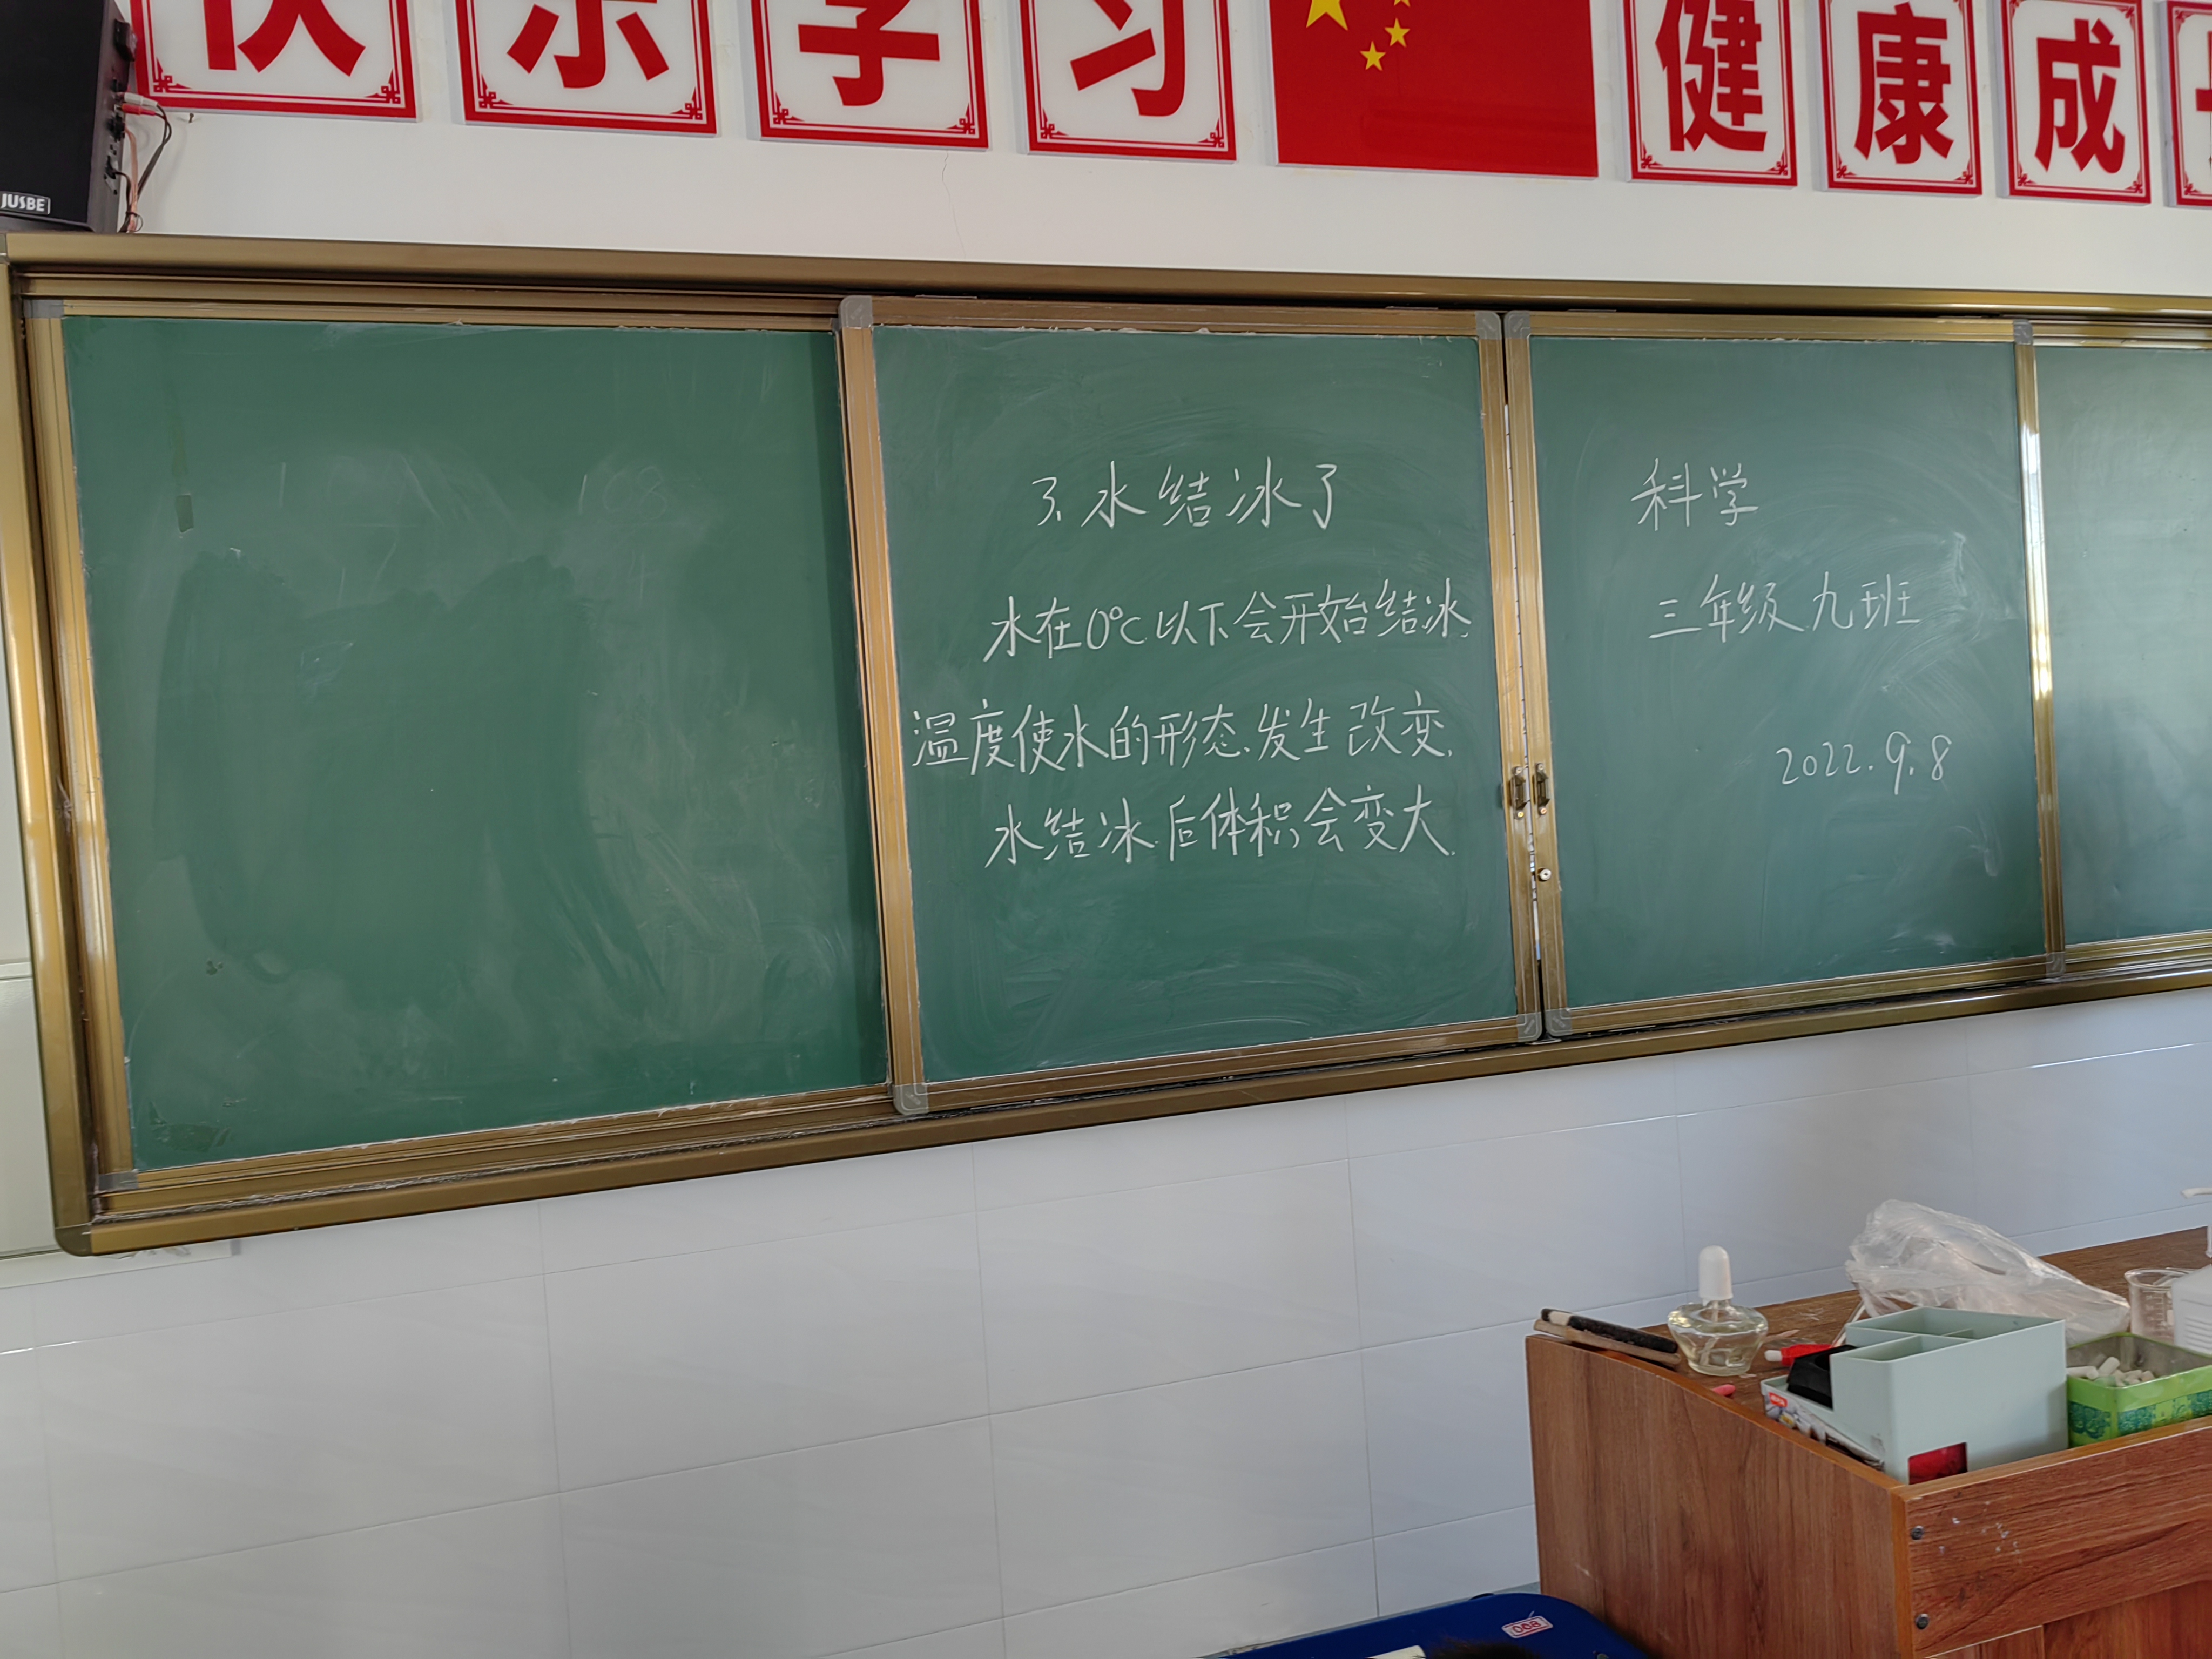 快乐学习 健康成
JUSBE
3. 水结冰了
水在0℃以下会开始结冰.
温度使水的形态发生改变.
水结冰后体积会变大.
科学
三年级九班
2022.9.8
008